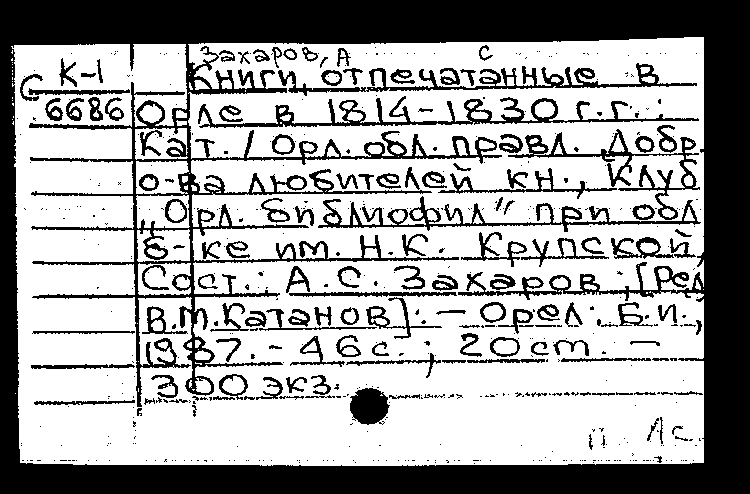 Захаров, А С
К-1 Книги, отпечатанные в
С 6686 Орле в 1814-1830 г.г. :
Кат. / Орл. обл. правл. Добр.
о-ва любителей кн., Клуб
„Орл. библиофил" при обл
б-ке им. Н.К. Крупской,
Сост.: А.С. Захаров ; [Ред
В.М.Катанов]. — Орел : Б.и.,
1987. - 46 с. ; 20 cm. —
300 экз.